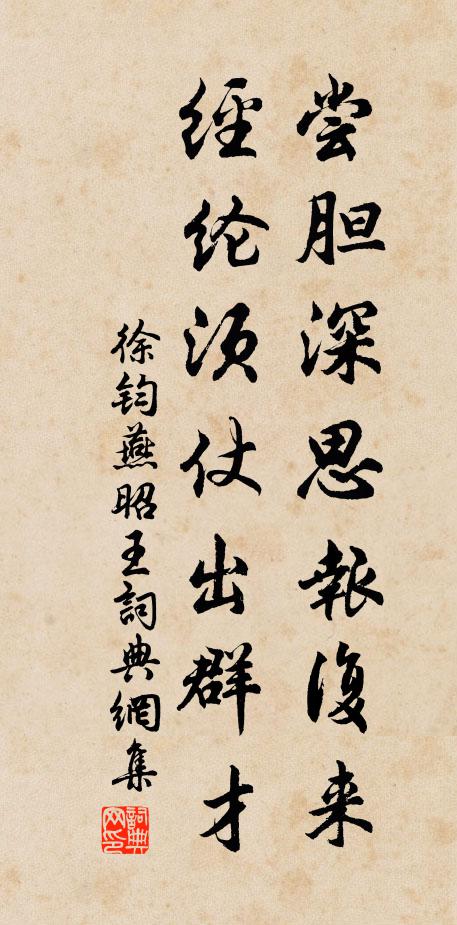 尝胆深思報復来
经纶须仗出群才
徐钧燕昭王詞典網集
詞典网印